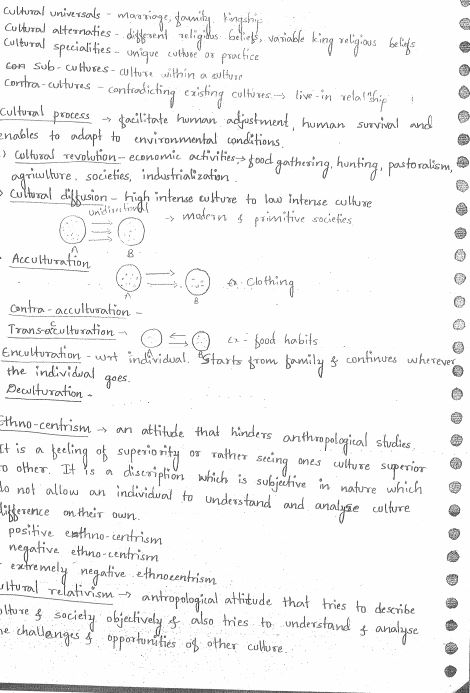 Cultural universals - marriage, family kingship
Cultural alternaties - different religious beliefs, variable king religious beliefs
Cultural specialities - unique culture or practice
con sub-cultures - culture within a culture
contra-cultures - contradicting existing cultures → live-in relatship
Cultural process → facilitate human adjustment, human survival and
enables to adapt to environmental conditions.
) Cultural revolution - economic activities → food gathering, hunting, pastoralism,
agriulture. societies, industrialization.
) Cultural diffusion - high intense culture to low intense culture
unidirectional → modern & primitive societies
A B
Acculturation
A B ex. Clothing
Contra-acculturation -
Transaculturation → C A B ex- food habits
Enculturation - wrt individual. Starts from family & continues wherever
the individual goes.
Deculturation -
Ethno-centrism → an attitude that hinders anthropological studies.
It is a feeling of superiority or rather seeing ones culture superior
to other. It is a discription which is subjective in nature which
do not allow an individual to understand and analyse culture
difference on their own.
positive enthno-centrism
negative ethno-centrism
extremely negative ethnocentrism
ultural relativism → antropological attitude that tries to describe
ulture & society objectively & also tries to understand & analyse
he challanges & opportunities of other culture.